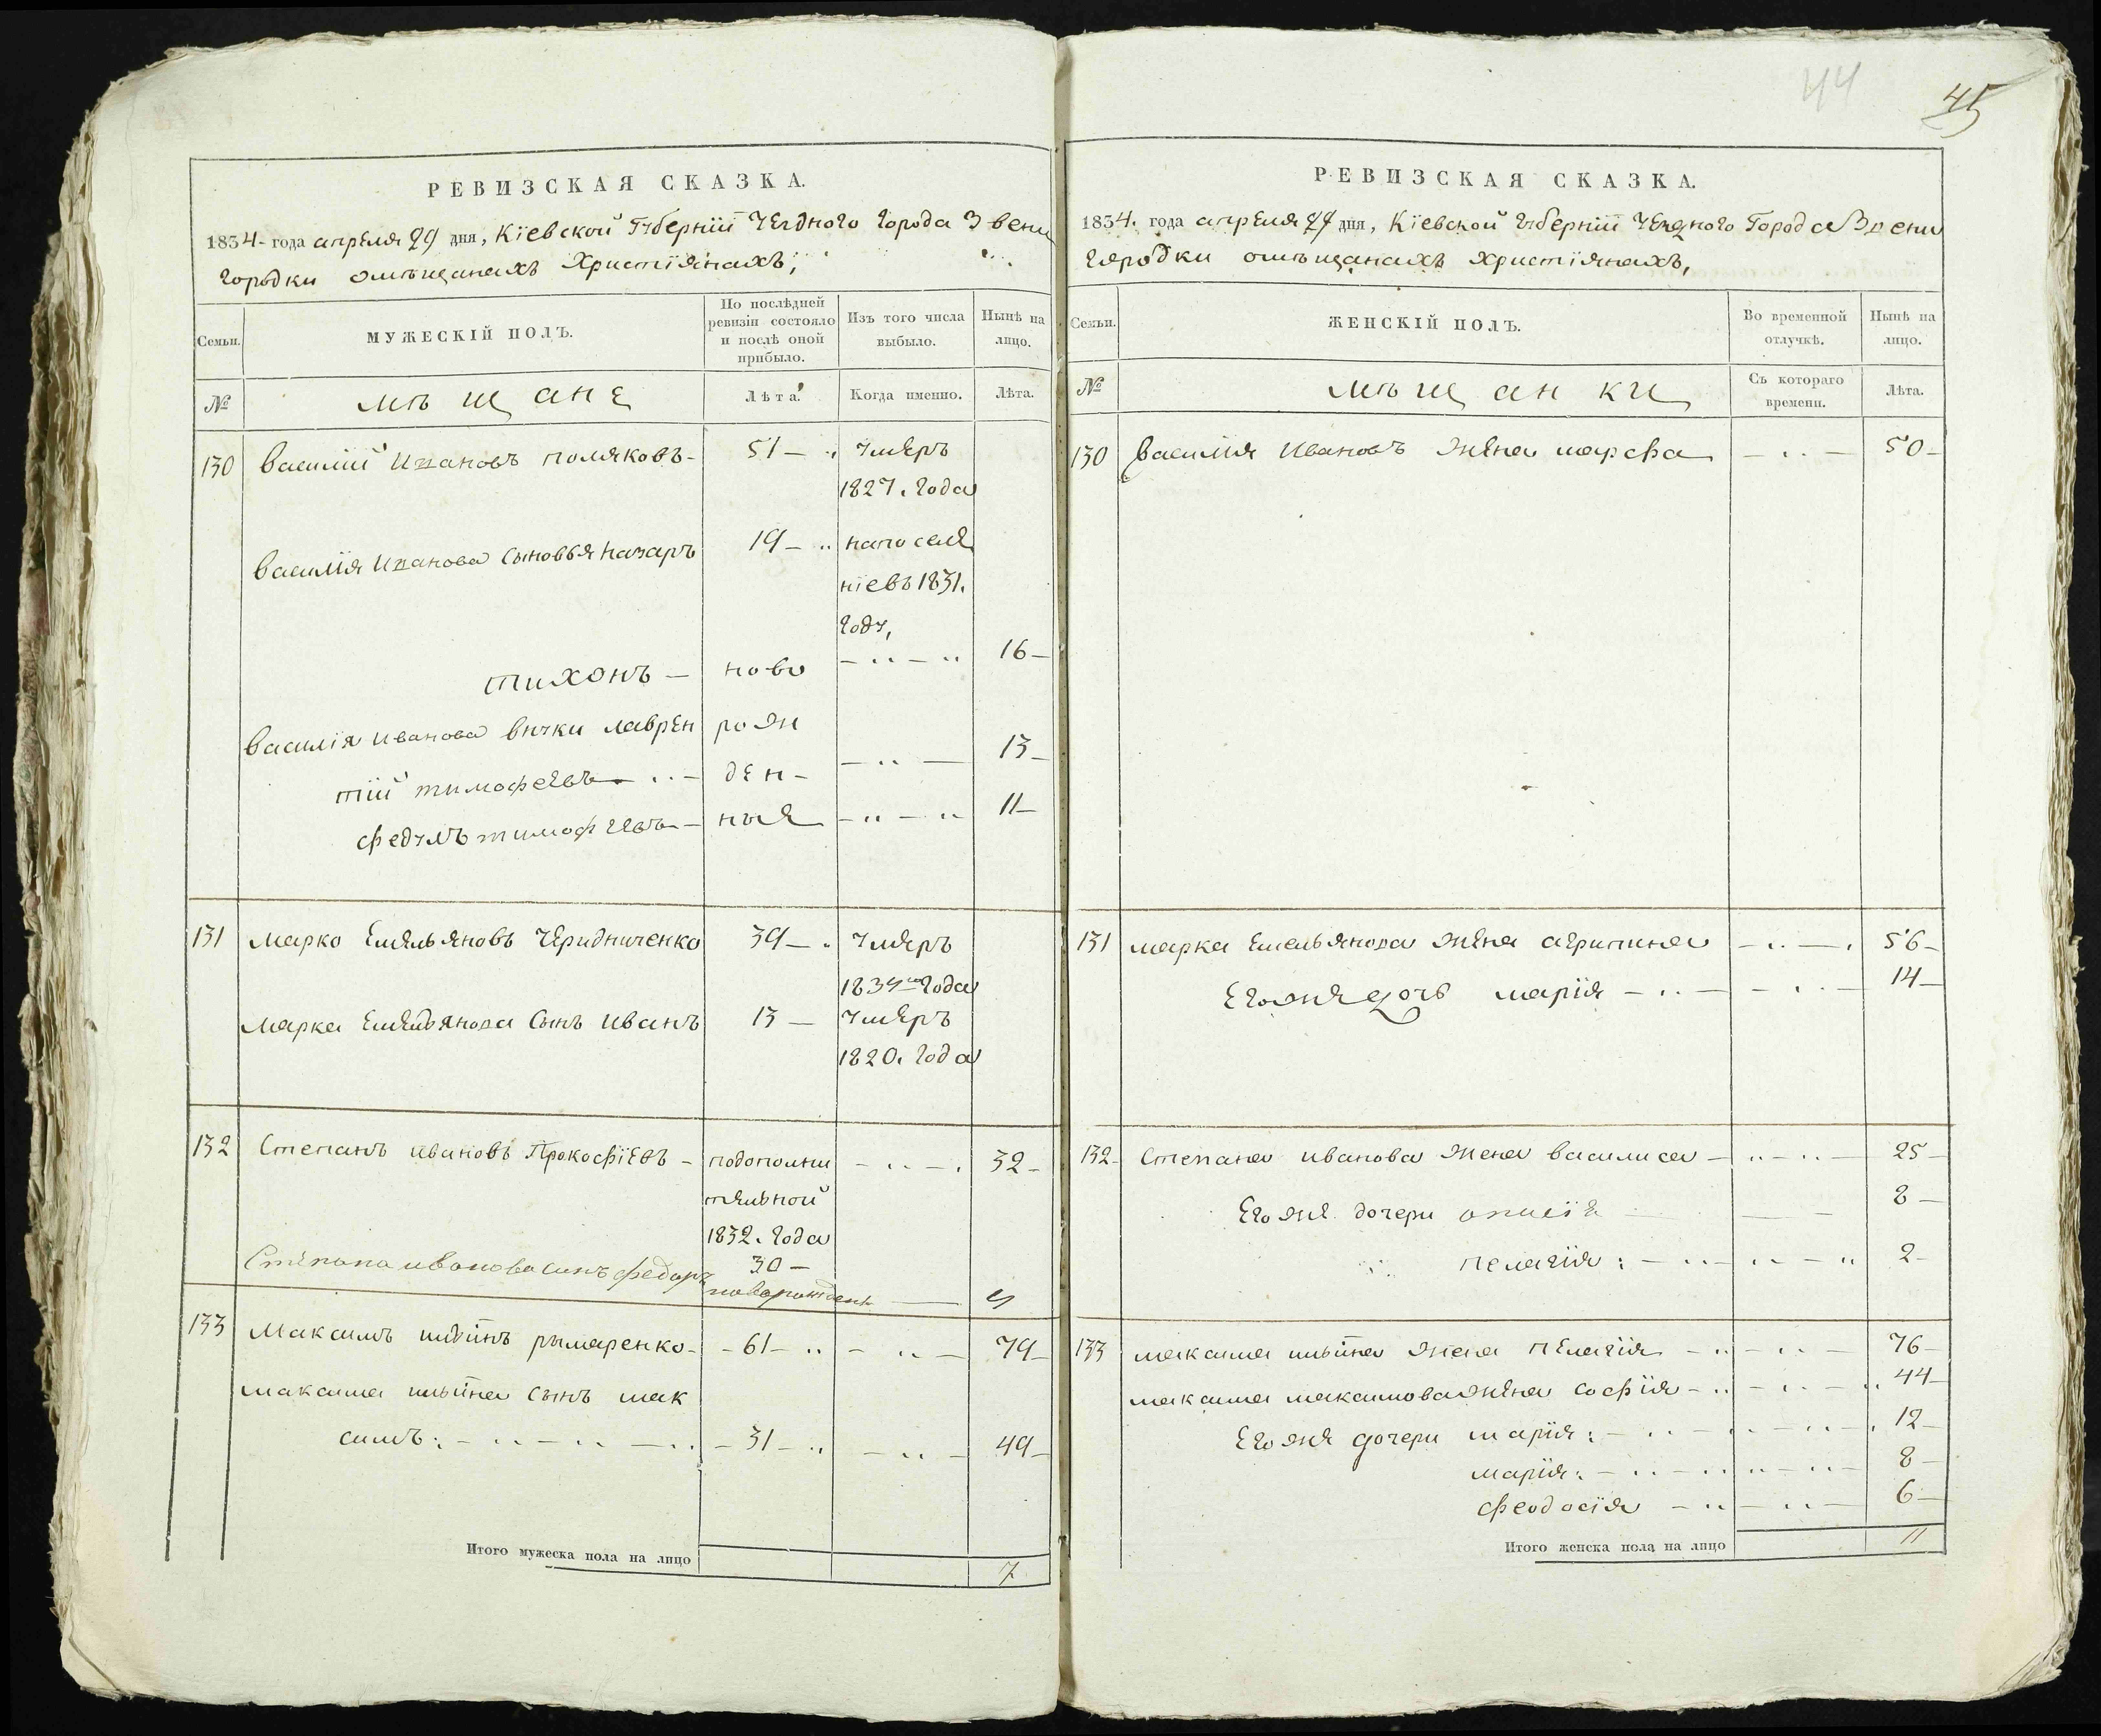 44
45
РЕВИЗСКАЯ СКАЗКА.
1834 года апреля 29 дня, Кіевской Губерніи уезднаго города Звени
городки о мѣщанахъ христіянахъ;
Семьи.
МУЖЕСКІЙ ПОЛЪ.
По послѣдней ревизіи состояло и послѣ оной прибыло.
Изъ того числа выбыло.
Нынѣ на лицо.
№
мѣщане
Лѣта.
Когда именно.
Лѣта.
130 Василій Ивановъ поляковъ - 51 - умеръ
1827. года
Василія Иванова сыновья назаръ 19 - на поселе
ніе въ 1831.
году,
тихонъ - ново 16 -
Василія Иванова внуки лаврен рож
тій тимофеевъ - ден - 13 -
федулъ тимофеевъ - ныя 11 -
131 Марко Емельяновъ Чередниченко 39 - умеръ
года
Марка Емельянова сынъ Иванъ 13 - умеръ
1820. года
132 Степанъ ивановъ Прокофіевъ - подополни 32 -
тельной
1832. года
30 -
Степана иванова сынъ федоръ новорожден
133 Максимъ рымаренко - 61 - 79 -
максима сынъ мак
симъ: - 31 - 49 -
Итого мужеска пола на лицо 7
РЕВИЗСКАЯ СКАЗКА.
1834. года апреля дня, Кіевской губерніи уезднаго города Звени
городки о мѣщанахъ христіянахъ,
Семьи.
ЖЕНСКІЙ ПОЛЪ.
Во временной отлучкѣ.
Нынѣ на лицо.
№
мѣщанки
Съ котораго времени.
Лѣта.
130 Василія Ивановъ жена марфа 50 -
131 марка Емельянова жена агрипина 56 -
Егожя дочь марія 14 -
132 Степана иванова жена василиса 25 -
Его же дочери 8 -
пелагія: 2 -
133 максима жена пелагія 76 -
максима максимова жена софія 44 -
Егожя дочери марія: 12 -
марія: 8 -
феодосія 6 -
Итого женска пола на лицо 11